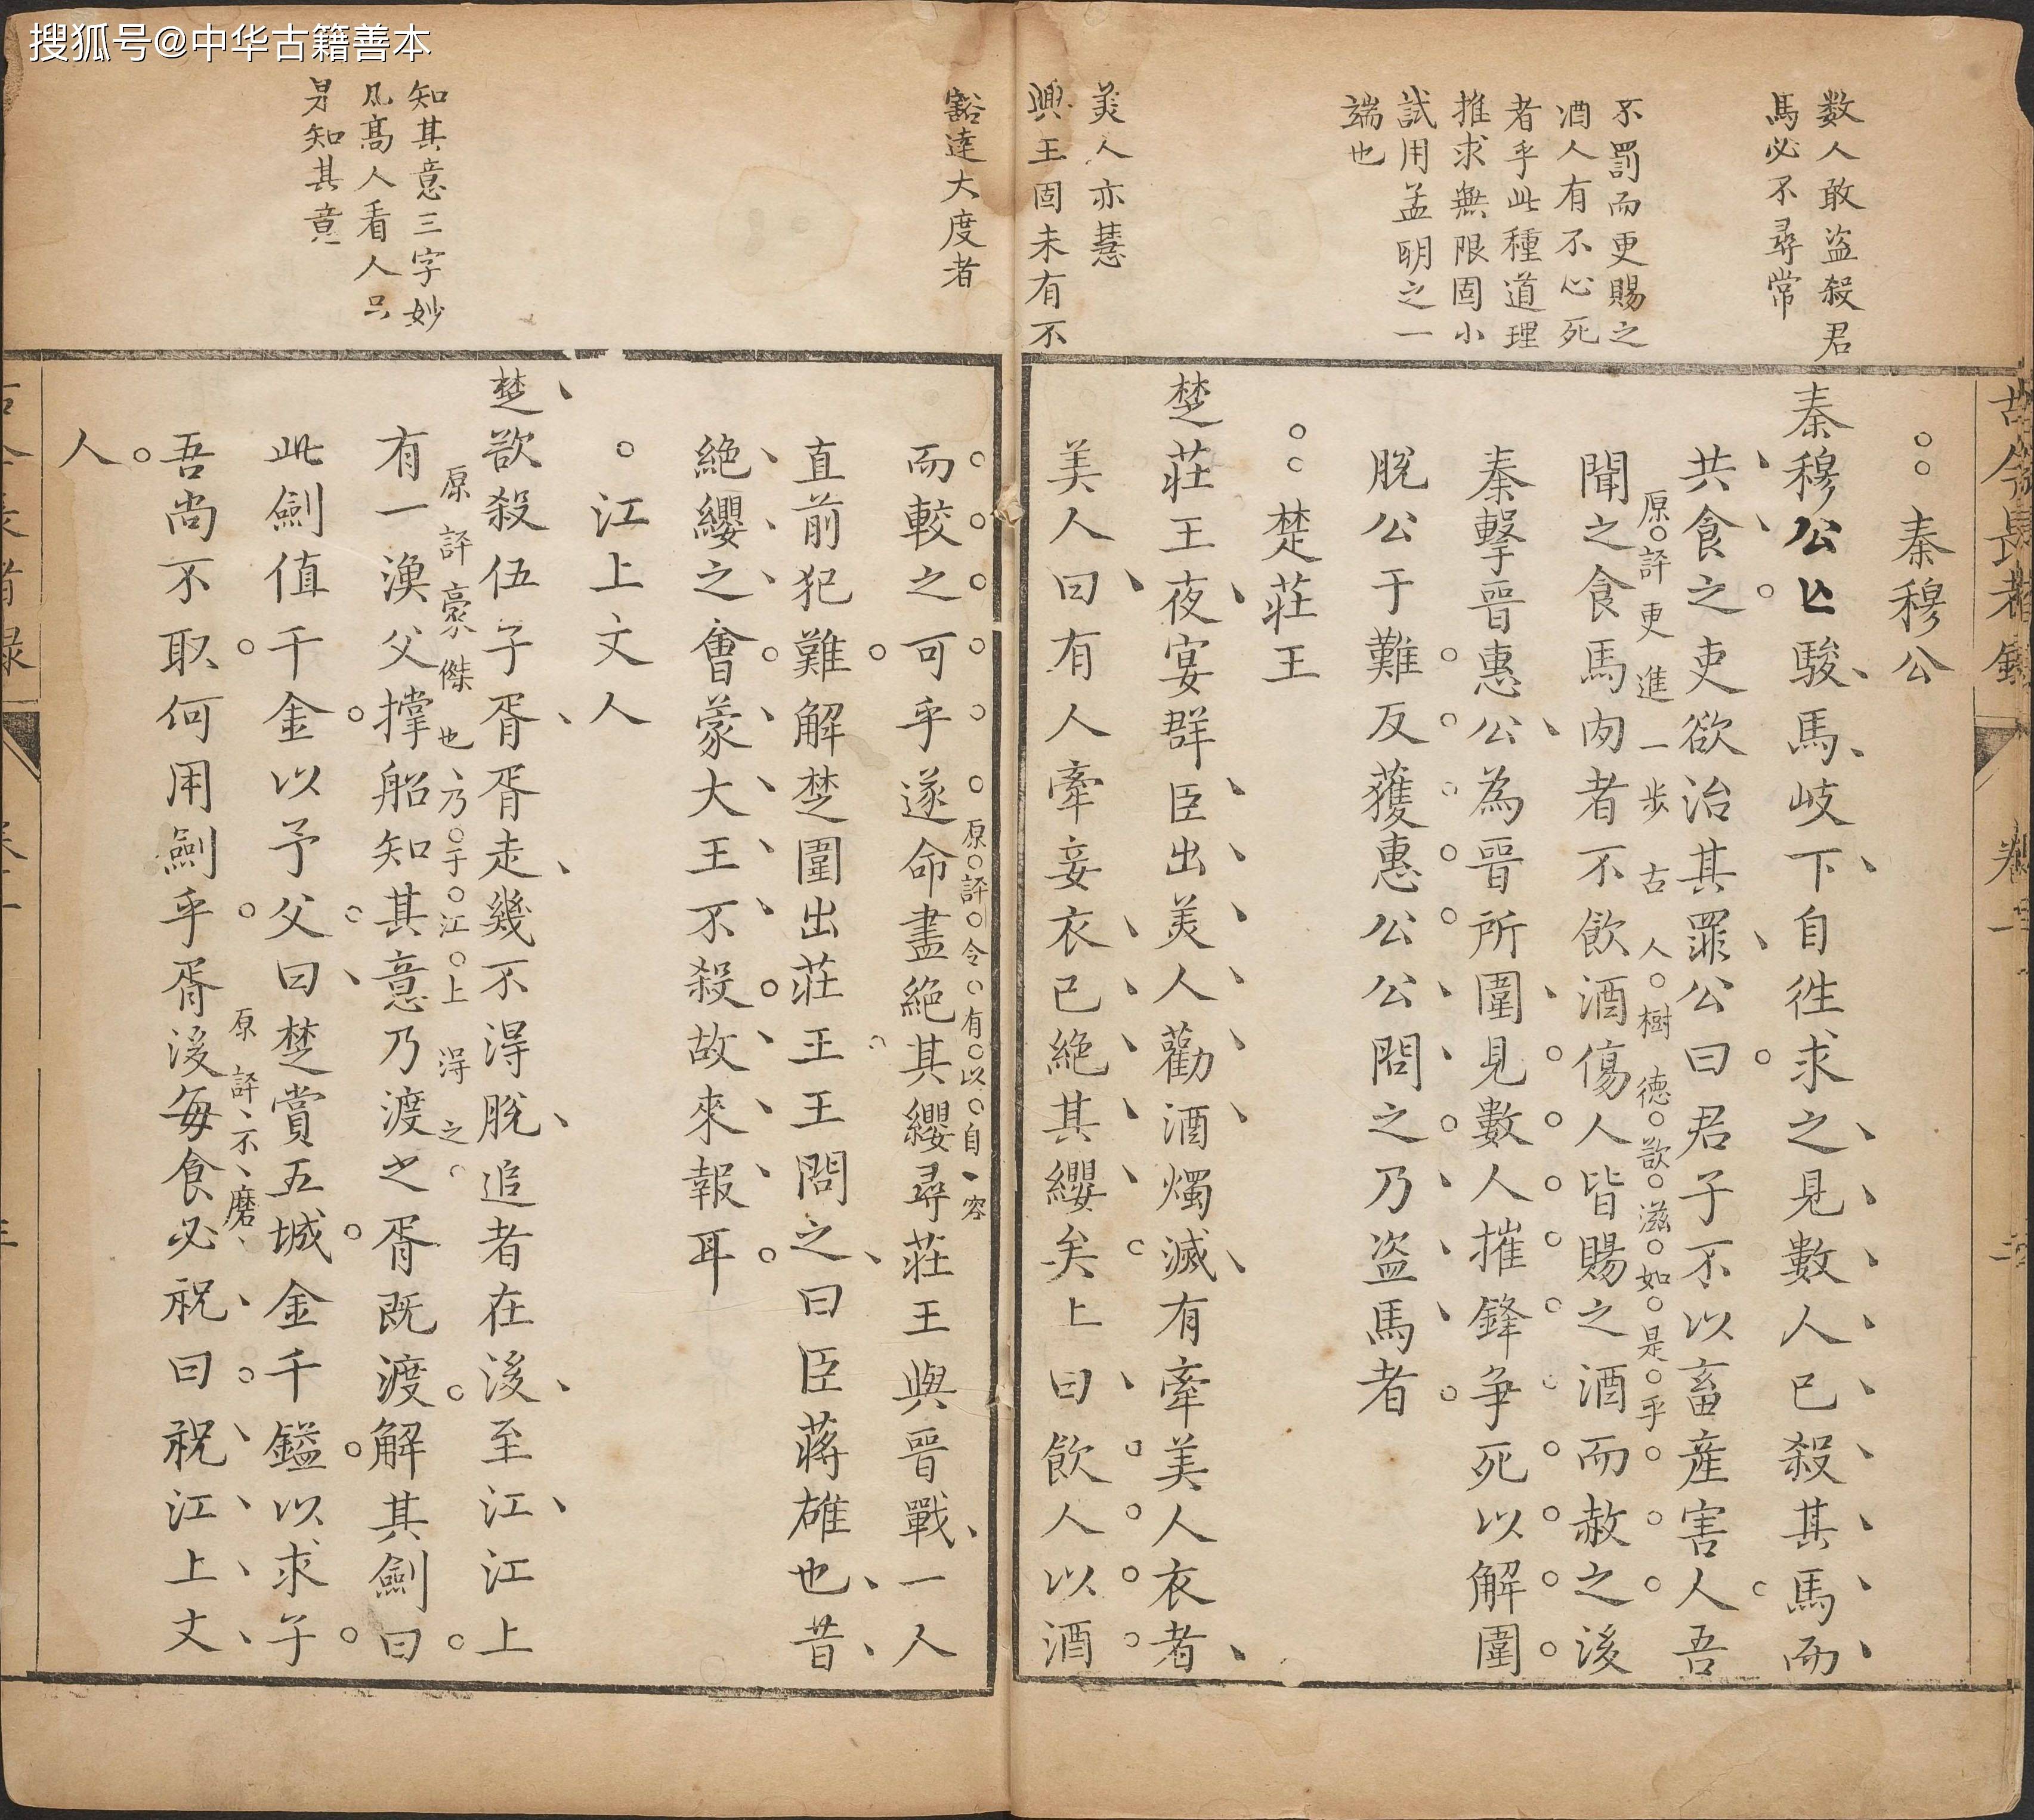 搜狐号@中华古籍善本
古今長者錄
卷一
数人敢盗殺君
馬必不尋常
不罰而更賜之
酒人有不心死
者乎此種道理
推求無限固小
試用孟明之一
端也
美人亦慧
興王固未有不
秦穆公
秦穆公亡駿馬岐下自徃求之見數人已殺其馬而
共食之吏欲治其罪公曰君子不以畜産害人吾
原評更進一步古人樹德欲滋如是乎
聞之食馬肉者不飲酒傷人皆賜之酒而赦之後
秦擊晉惠公為晉所圍見數人摧鋒争死以解圍
脫公于難反獲惠公公問之乃盗馬者
楚莊王
楚莊王夜宴群臣出美人勸酒燭滅有牽美人衣者
美人曰有人牽妾衣已絕其纓矣上曰飲人以酒
豁達大度者
知其意三字妙
凡高人看人只
是知其意
原評令有以自容
而較之可乎遂命盡絕其纓尋莊王與晉戰一人
直前犯難解楚圍出莊王王問之曰臣蔣雄也昔
絕纓之會蒙大王不殺故來報耳
江上丈人
楚欲殺伍子胥胥走幾不得脫追者在後至江江上
原評豪傑也乃于江上得之
有一漁父撑船知其意乃渡之胥既渡解其劍曰
此劍值千金以予父父曰楚賞五城金千鎰以求子
吾尚不取何用劍乎胥後每食必祝曰祝江上丈
原評不磨
人